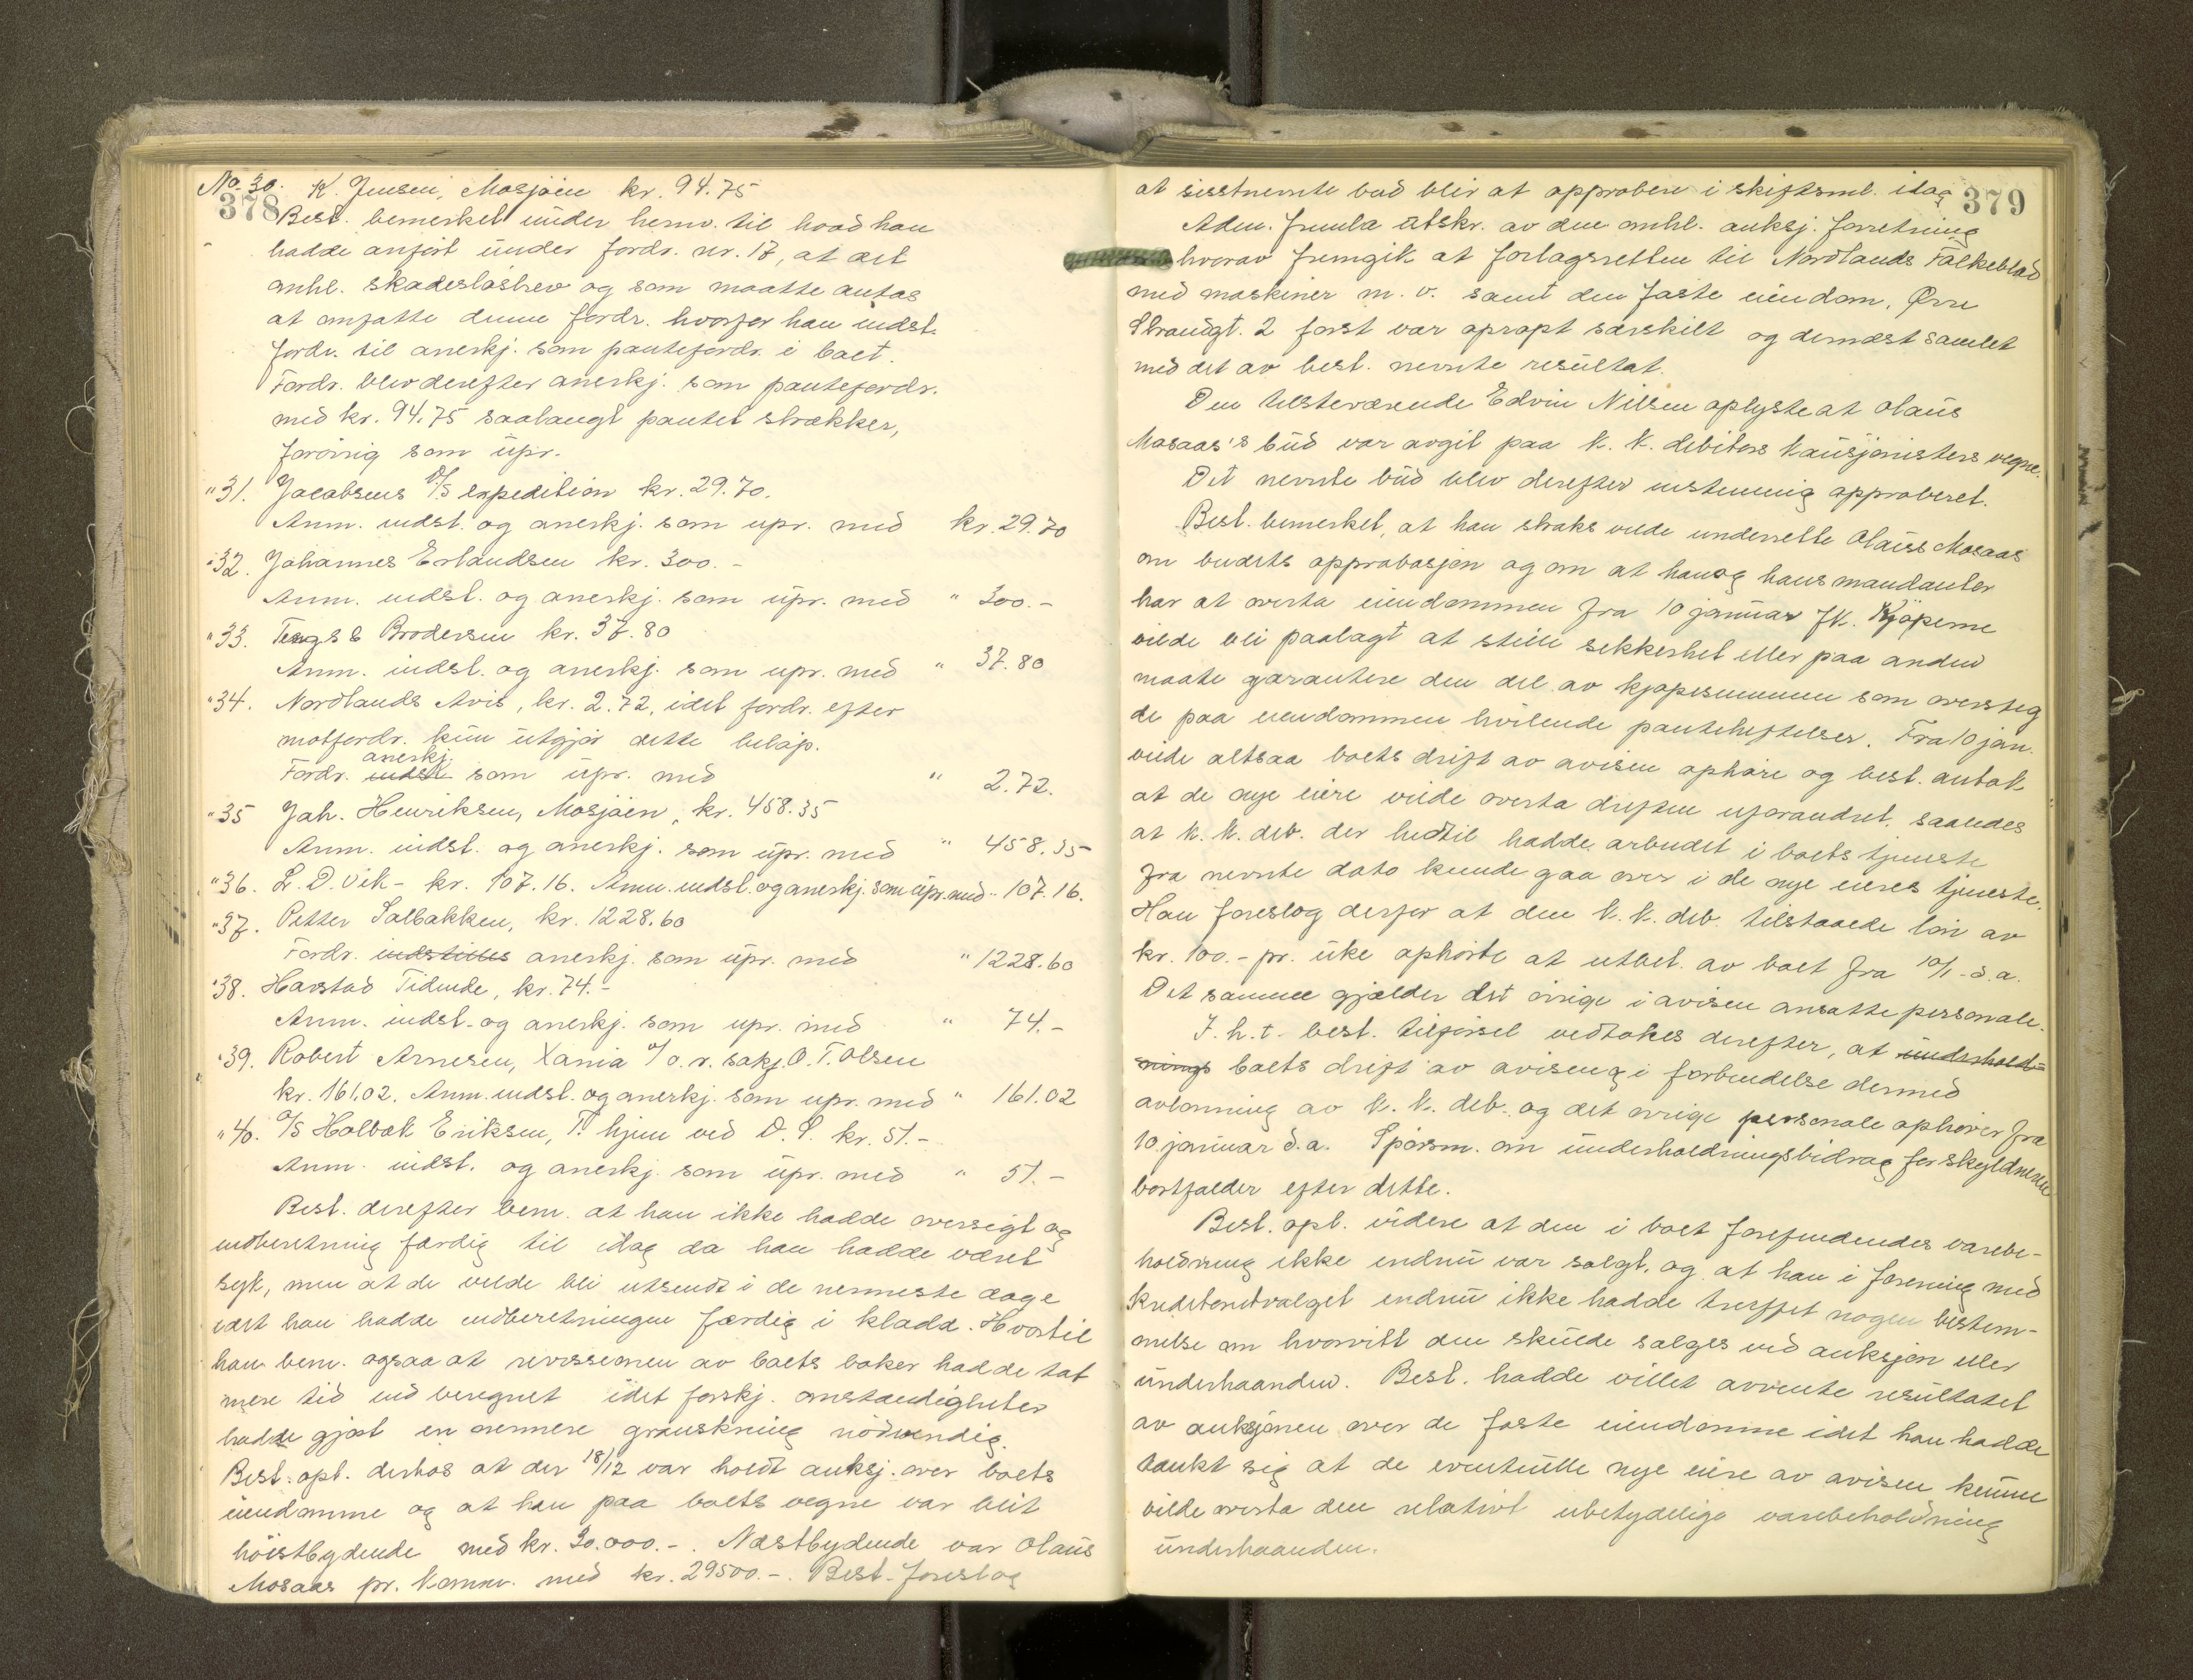 No. 30. K. Jensen, Mosjøen kr. 94.75
378
Best. bemerket under henv. til hvad han
hadde anført under fordr. nr. 17, at det
anhl. skadesløsbrev og som maatte antas
at omfatte denne fordr. hvorfor han indst.
fordr. til anerkj. som pantefordr. i boet.
Fordr. blev derefter anerkj. som pantefordr.
med kr. 94.75 saalangt pantet strækker,
forøvrig som upr.
" 31. Jacobsens D/S expedition kr. 29.70.
Anm. indst. og anerkj. som upr. med kr. 29.70
" 32. Johannes Erlandsen kr. 300.-
Anm. indst. og anerkj. som upr. med " 300.-
" 33. Tengs & Brodersen kr. 37.80
Anm. indst. og anerkj. som upr. med " 37.80
" 34. Nordlands Avis, kr. 2.72, idet fordr. efter
motfordr. kun utgjør dette beløp.
anerkj.
Fordr. indst. som upr. med " 2.72.
" 35 Joh. Henriksen, Mosjøen, kr. 458.35
Anm. indst. og anerkj. som upr. med " 458.35
" 36. L. D. Vik - kr. 107.16. Anm. indst. og anerkj. som upr. med " 107.16.
" 37. Petter Solbakken, kr. 1228.60
Fordr. indstilles anerkj. som upr. med " 1228.60
" 38. Harstad Tidende, kr. 74.-
Anm. indst. og anerkj. som upr. med " 74.-
" 39. Robert Arnesen, Xania v/ o.r. sakf. O. T. Olsen
kr. 161.02. Anm. indst. og anerkj. som upr. med " 161.02
" 40. A/S Holbæk Eriksen, T. hjem ved D. S. kr. 51.-
Anm. indst. og anerkj. som upr. med " 51.-
Best. derefter bem. at han ikke hadde oversigt og
indberetning færdig til idag da han hadde været
syk, men at de vilde bli utsendt i de nermeste dage
idet han hadde indberetningen færdig i kladd. Hvortil
han bem. ogsaa at revisionen av boets bøker hadde tat
mere tid end beregnet idet forskj. omstændigheter
hadde gjort en nermere granskning nødvendig.
Best. opl. derhos at der 18/12 var holdt auksj. over boets
eiendomme og at han paa boets vegne var blit
høistbydende med kr. 30.000.-. Næstbydende var Olaus
Mosaas pr. komm. med kr. 29500.-. Best. foreslog
379
at sisstnevnte bud blir at approbere i skiftsml. idag
Adm. fremla utskr. av den anhl. auksj. forretning
hvorav fremgik at forlagsretten til Nordlands Folkeblad
med maskiner m. v. samt den faste eiendom, Øvre
Strandgt. 2 først var opropt særskilt og dernæst samlet
med det av best. nevnte resultat.
Den tilstværende Edvin Nilsen oplyste at Olaus
Mosaas's bud var avgit paa k. k. debitors kausjonisters vegne.
Det nevnte bud blev derefter enstemmig approberet.
Best. bemerket, at han straks vilde underrette Olaus Mosaas
om budets approbasjon og om at han og hans mandanter
har at overta eiendommen fra 10 januar fk. Kjøperne
vilde bli paalagt at stille sikkerhet eller paa anden
maate garantere den del av kjøpesummen som oversteg
de paa eiendommen hvilende pantehæftelser. Fra 10 jan.
vilde altsaa boets drift av avisen ophøre og best. antok
at de nye eiere vilde overta driften uforandret, saaledes
at k. k. deb. der hidtil hadde arbeidet i boets tjeneste
fra nevnte dato kunde gaa over i de nye eieres tjeneste.
Han foreslog derfor at den k. k. deb. tilstaaede løn av
kr. 100.- pr. uke ophørte at utbet. av boet fra 10/1- d.a.
Det samme gjælder det øvrige i avisen ansatte personale.
I. h. t. best. tilførsel vedtokes derefter, at underhold-
nings boets drift av avisen og i forbindelse dermed
avlønning av k. k. deb. og det øvrige personale ophører fra
10. januar d.a. Spørsm. om underholdningsbidrag for skyldneren
bortfalder efter dette.
Best. opl. videre at den i boet forefindendes varebe-
holdning ikke endnu var solgt, og at han i forening med
kreditorutvalget endnu ikke hadde truffet nogen bestem-
melse om hvorvitt den skulde selges ved auksjon eller
underhaanden. Best. hadde villet avvente resultatet
av auksjonen over de faste eiendomme idet han hadde
tænkt sig at de eventuelle nye eiere av avisen kunne
vilde overta den relativt ubetydelige varebeholdning
underhaanden.